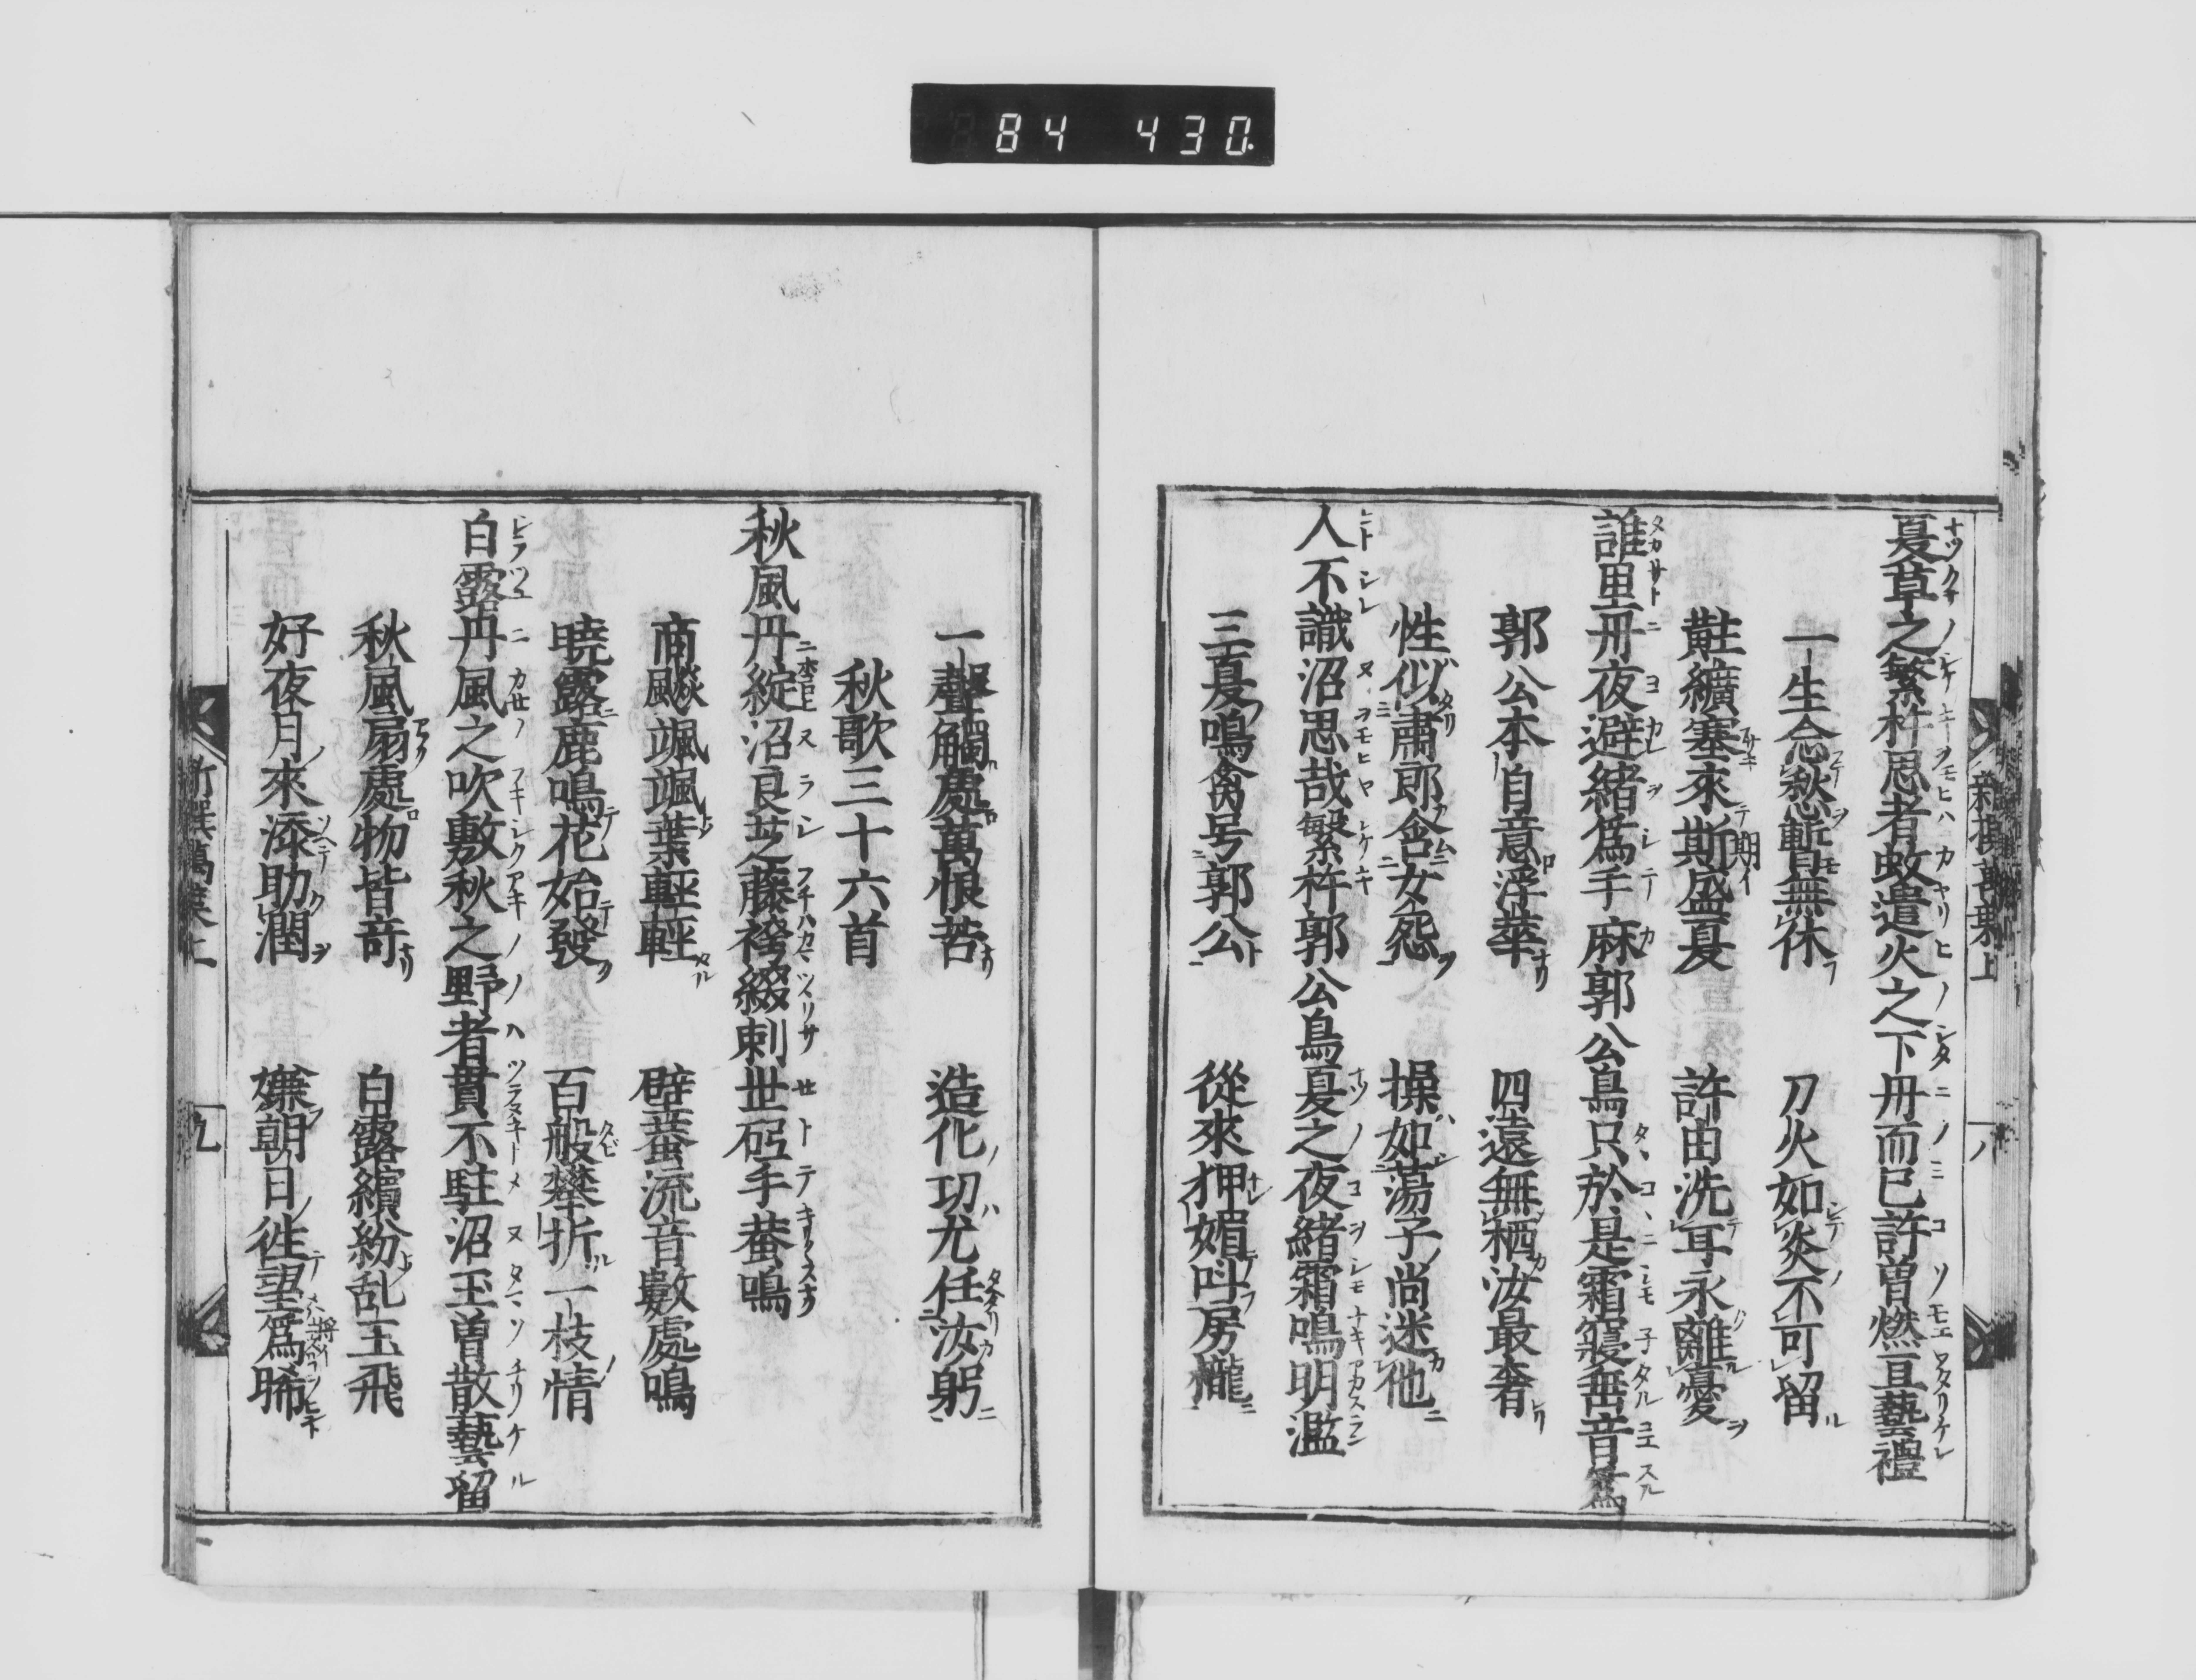 84 430.
新撰萬葉上
八
夏草之繁杵思者蚊遣火之下丹而已許曽燃亘藝禮
一生念愁暫無休 刀火如炎不可留
黈纊塞來斯盛夏 許由洗耳永離憂
誰里丹夜避緒爲手麻郭公鳥只於是霜寢垂音爲
郭公本自意浮華 四遠無栖汝最奢
性似蕭郎含女怨 操如蕩子尚迷他
人不識沼思哉繁杵郭公鳥夏之夜緒霜鳴明濫
三夏鳴禽号郭公 從來狎媚叫房櫳
一聲觸處萬恨苦 造化功尤任汝躬
秋歌三十六首
秋風丹綻沼良芝藤袴綴刺世砌手蛬鳴
商飇颯颯葉輕輕 壁蛬流音數處鳴
曉露鹿鳴花始發 百般攀折一枝情
白露丹風之吹敷秋之野者貫不駐沼玉曽散藝留
秋風扇處物皆奇 白露繽紛乱玉飛
好夜月來添助潤 嫌朝日徃望爲晞
新撰萬葉上
九